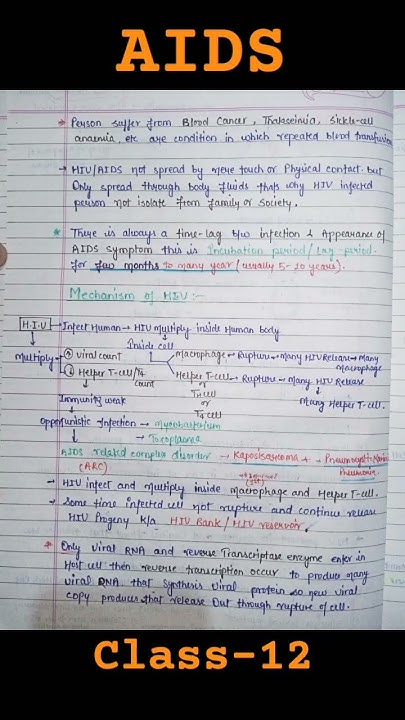 AIDS
→ Person suffer from Blood Cancer, Thalasemia, Sickle-cell
anaemia, etc are condition in which repeated blood transfusion
→ HIV/AIDS not spread by mere touch or Physical contact. but
Only spread through body fluids thats why HIV infected
person not isolate from family or Society.
* There is always a time-lag b/w infection & Appearance of
AIDS symptom this is Incubation period/lag period.
for few months to many year (usually 5-10 years).
Mechanism of HIV :-
H.I.V → Infect Human → HIV Multiply inside Human body
Inside cell
Multiply → ↑ Viral count
Macrophage → Rupture → Many HIV Release → Many Macrophage
↓ Helper T-cell/T4 count
Helper T-cell → Rupture → Many HIV Release
or
TH cell
or
T4 cell
Many Helper T-cell.
Immunity weak
Opportunistic Infection → Mycobacterium
→ Toxoplasma
AIDS related complex disorder → Kaposi Sarcoma +
(ARC)
→ HIV infect and multiply inside macrophage and Helper T-cell.
→ Some time infected cell not rupture and continue release
HIV Progeny k/a HIV Bank/HIV reservoir.
* Only viral RNA and reverse Transcriptase enzyme enter in
Host cell then reverse transcription occur to produce many
viral RNA that synthesis viral protein so new viral
copy produces that release Out through rupture of cell.
Class-12